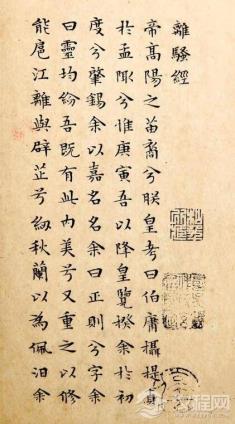 離騷經
帝高陽之苗裔兮朕皇考曰伯庸攝提貞
於孟陬兮惟庚寅吾以降皇覽揆余於初
度兮肇錫余以嘉名名余曰正則兮字余
曰靈均紛吾既有此內美兮又重之以修
能扈江離與辟芷兮紉秋蘭以為佩汩余